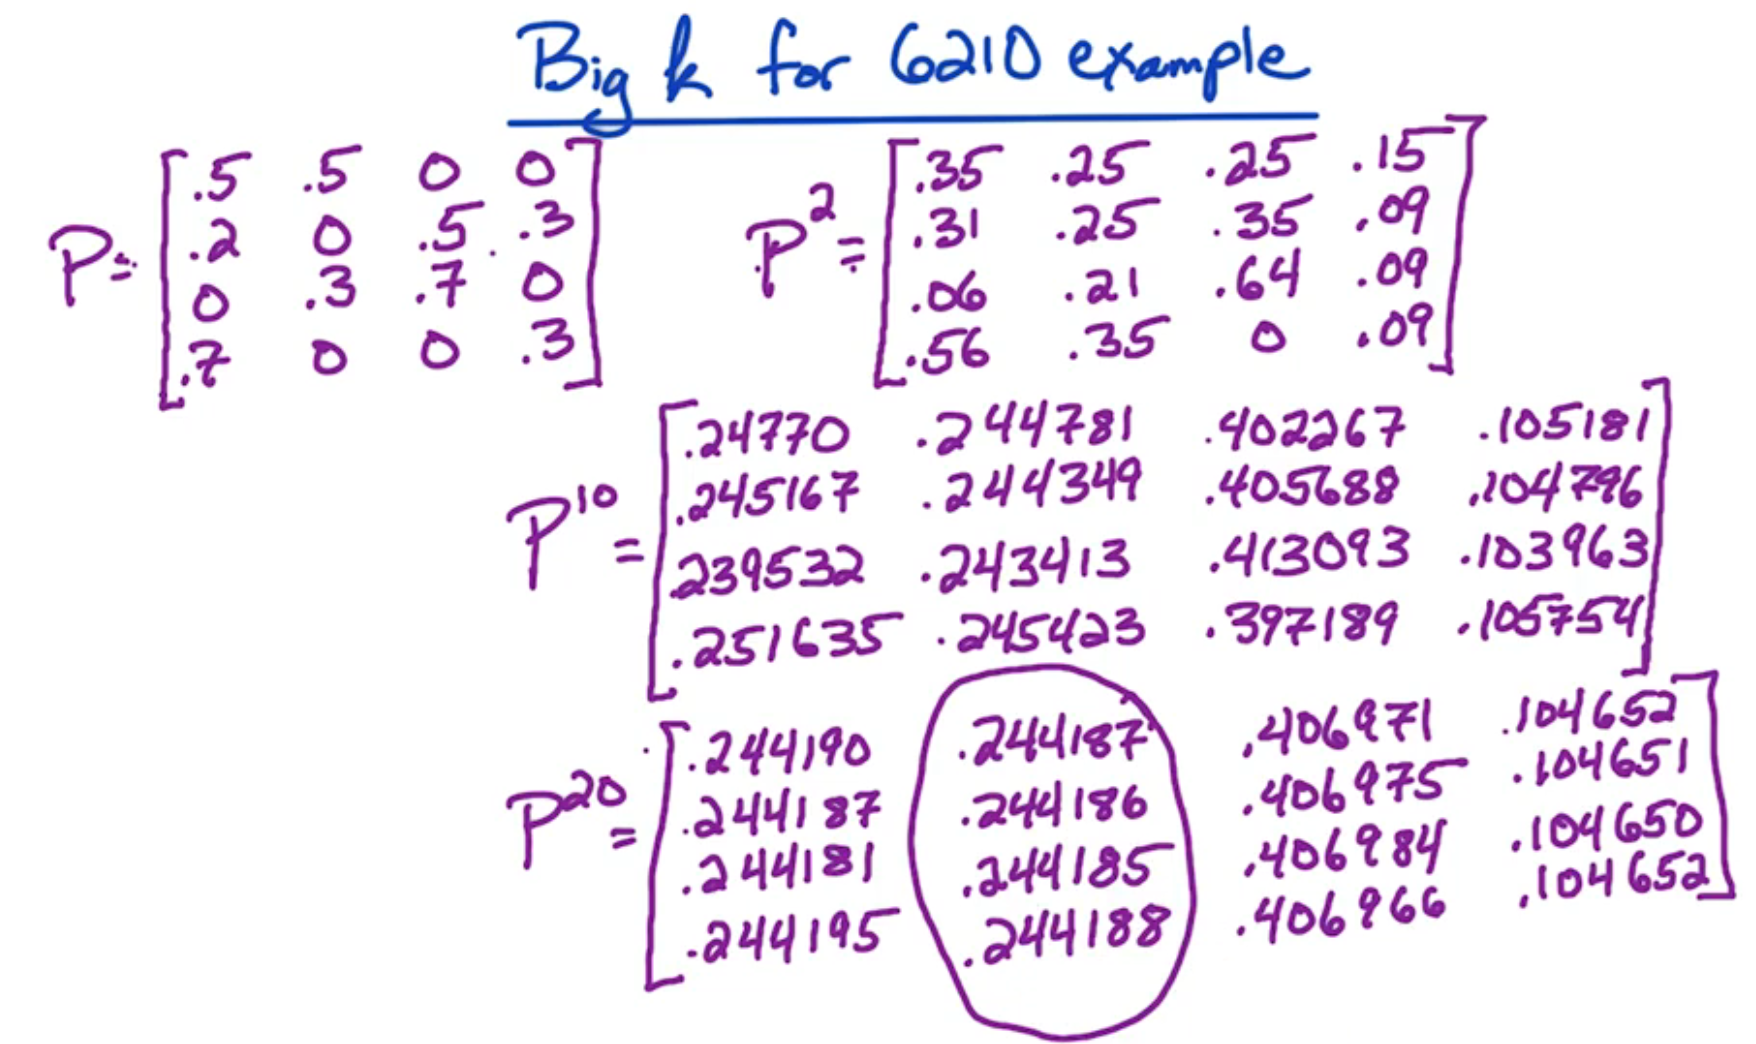 Big k for 6210 example
P= [ .5 .5 0 0 ]
.2 0 .5 .3
0 .3 .7 0
.7 0 0 .3
P² = [ .35 .25 .25 .15 ]
.31 .25 .35 .09
.06 .21 .64 .09
.56 .35 0 .09
P¹⁰ = [ .24770 .244781 .402267 .105181 ]
.245167 .244349 .405688 .104796
.239532 .243413 .413093 .103963
.251635 .245423 .397189 .105754
P²⁰ = [ .244190 .244187 .406971 .104652 ]
.244187 .244186 .406975 .104651
.244181 .244185 .406984 .104650
.244195 .244188 .406966 .104652